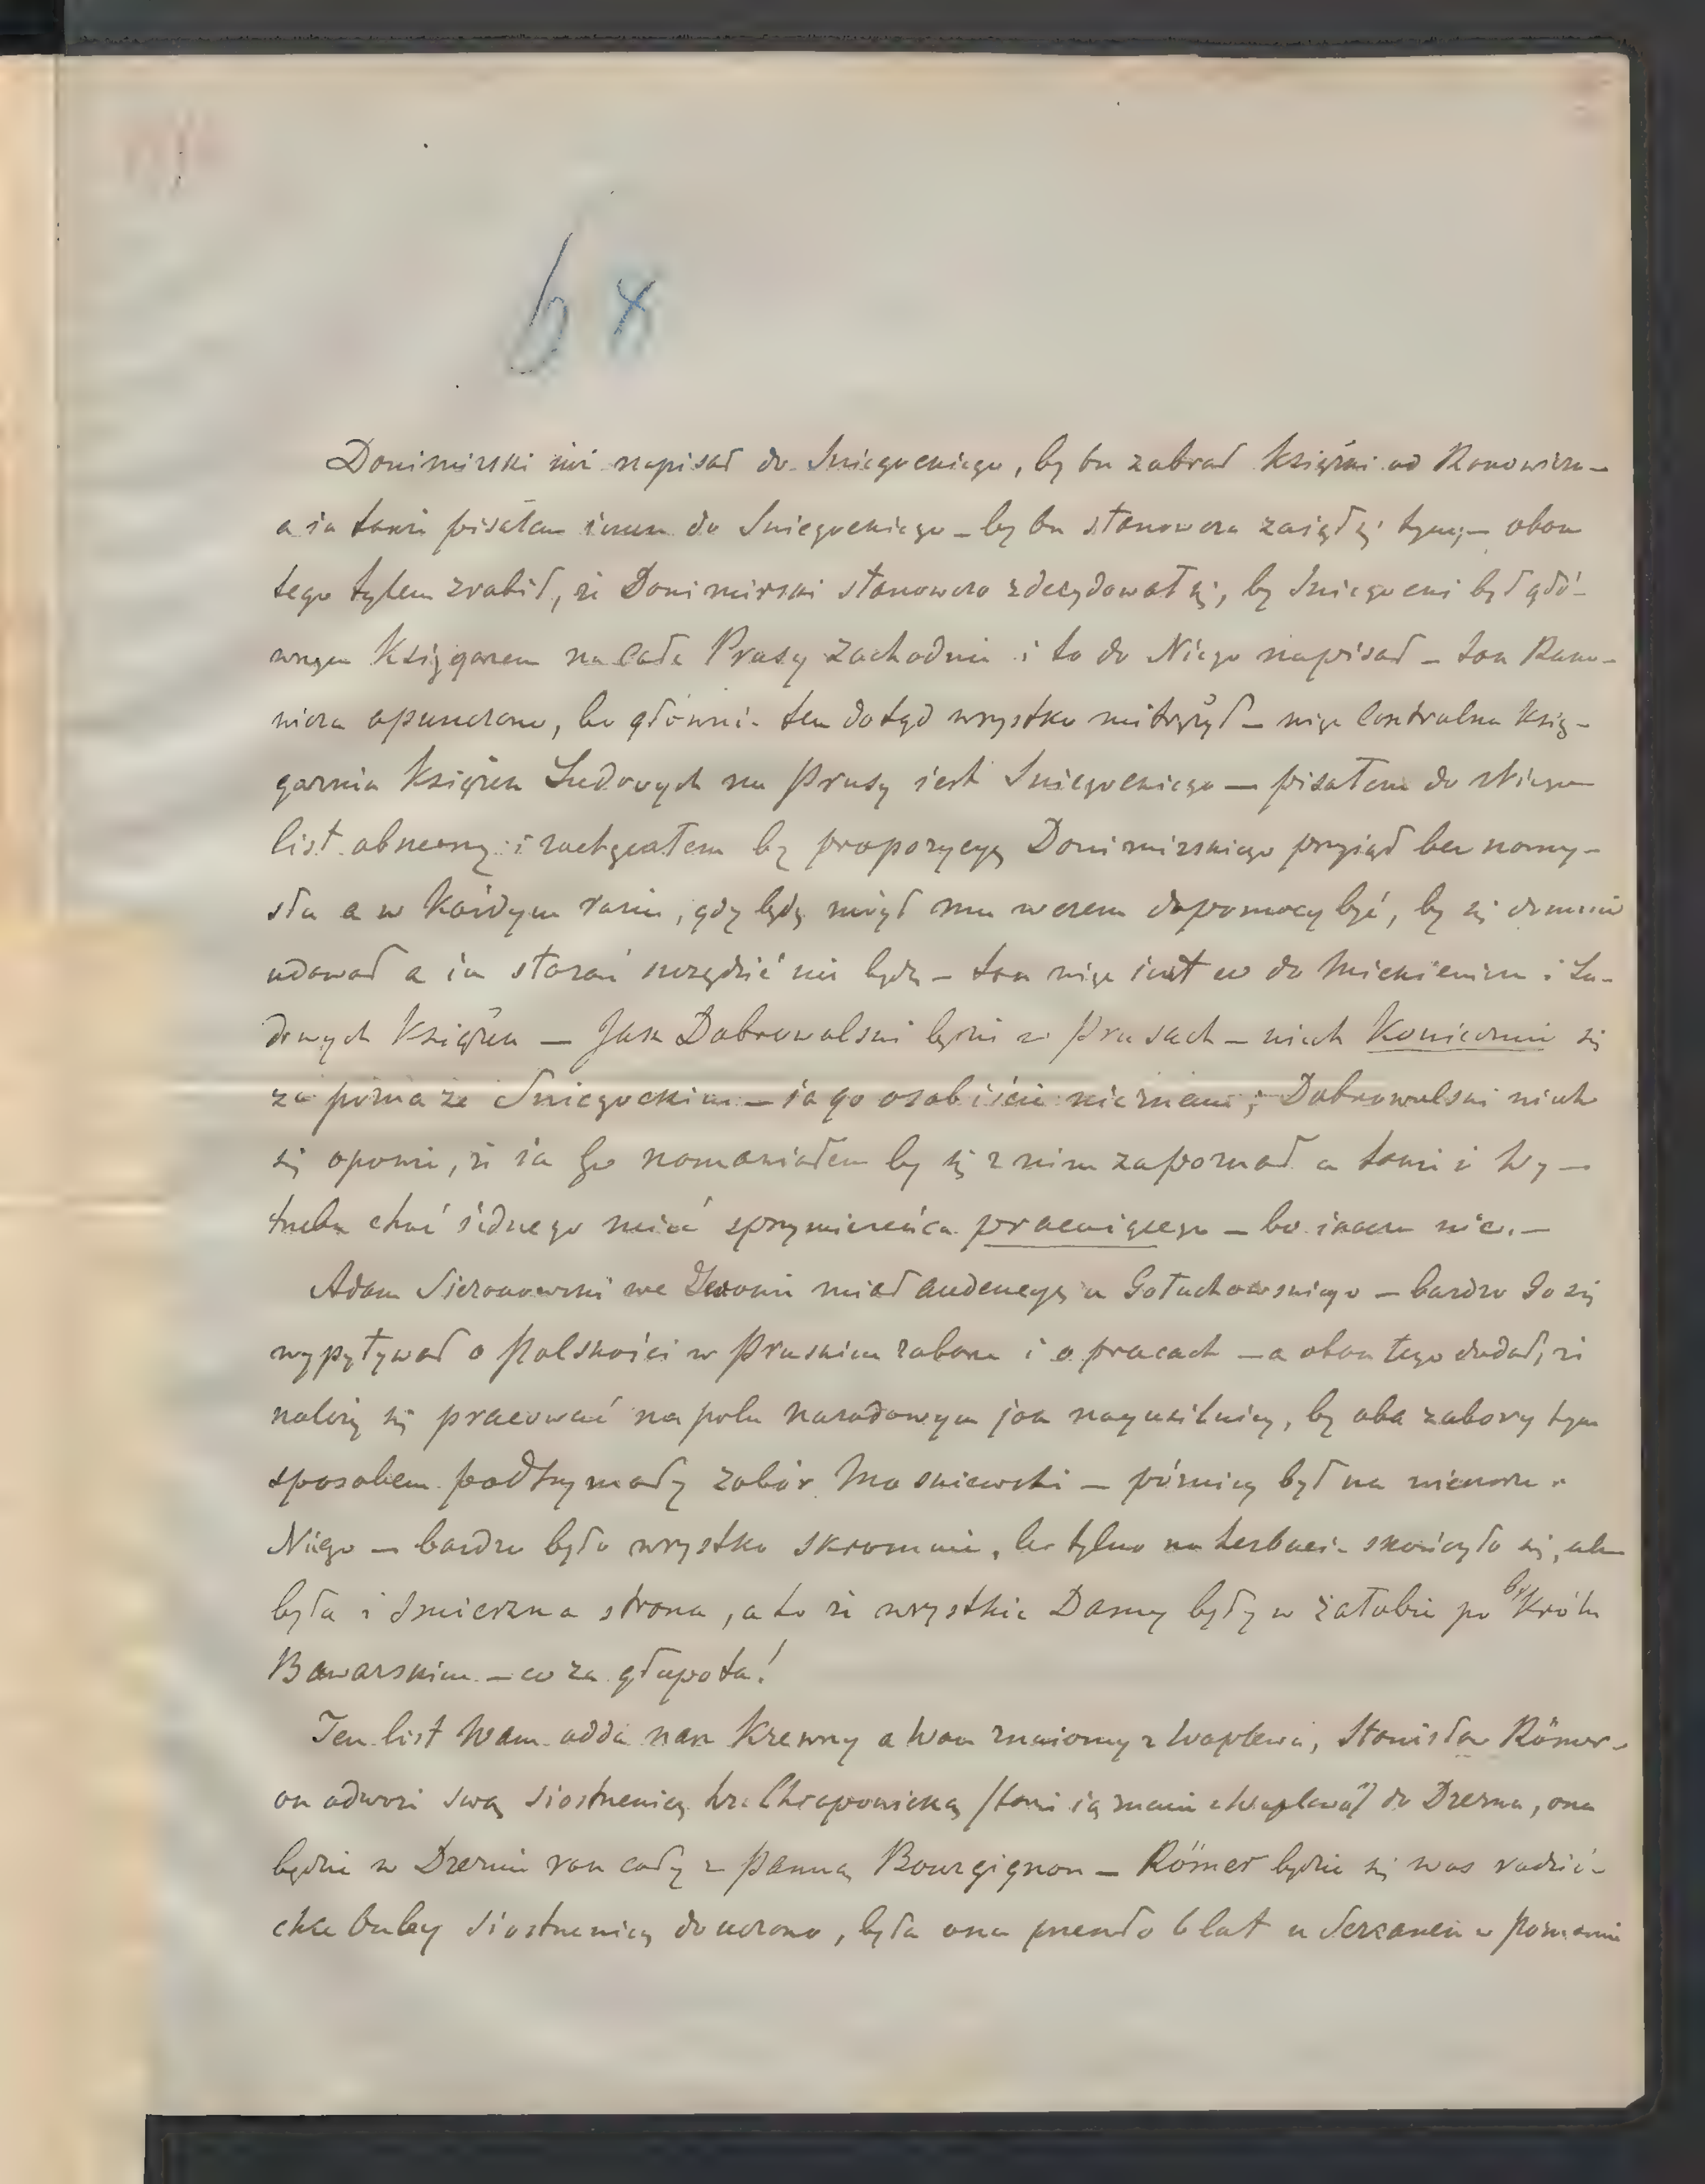 b x
Donimirski już napisał do Sniegockiego, by tu zabrał książki od Rakowicza –
a ja także pisałem znowu do Sniegockiego – by tu stanowczo zajął się tym; – obok
tego tylem zrobił, że Donimirski stanowczo zdecydował się, by Sniegocki był głó-
wnym Księgarzem na całe Prusy Zachodnie i to do Niego napisał – tak Rako-
wicza opuszczono, bo głównie ten dotąd wszystko mitrężył – więc Centralna księ-
garnia Książek Ludowych na Prusy jest Sniegockiego — pisałem do Niego
list obszerny i zachęcałem by propozycyę Donimirskiego przyjął bez namy-
słu a w każdym razie, gdy będę mógł mu w czem dopomocy być, by się do mnie
udawał a ja starań szczędzić nie będę – tak więc jest co do Mickiewicza i Lu-
dowych Książek — Jak Dobrowolski będzie w Prusach – niech Koniecznie się
zapozna ze Sniegockim – ja go osobiście nie znam; Dobrowolski niech
się opowie, że ja Go namawiałem by się z nim zapoznał a także i Wy —
trzeba choć jednego mieć sprzymierzeńca pracującego – bo inaczej nic. –
Adam Sierakowski we Lwowie miał audencyę u Gołuchowskiego – bardzo Go się
wypytywał o Polskości w Pruskim zaborze i o pracach – a obok tego dodał, że
należy się pracować na polu narodowym jak najusilniej, by oba zabory tym
sposobem podtrzymały zabór Moskiewski – później był na wieczorze u
Niego – bardzo było wszystko skromnie, bo tylko na herbacie skończyło się, ale
była i śmieszna strona, a to że wszystkie Damy były w żałobie po by Królu
Bawarskim – co za głupota!
Ten list Wam odda nasz Krewny a Wasz znajomy z Waplewa, Stanisław Römer –
on odwozi swą siostrzenicę hr. Chrapowicką /także ją znacie z Waplewa/ do Drezna, ona
będzie w Dreznie rok cały z Panną Bourgignon – Römer będzie się was radzić –
chce by siostrzenicę douczono, była ona przeszło 6 lat u Serzanek w Poznaniu